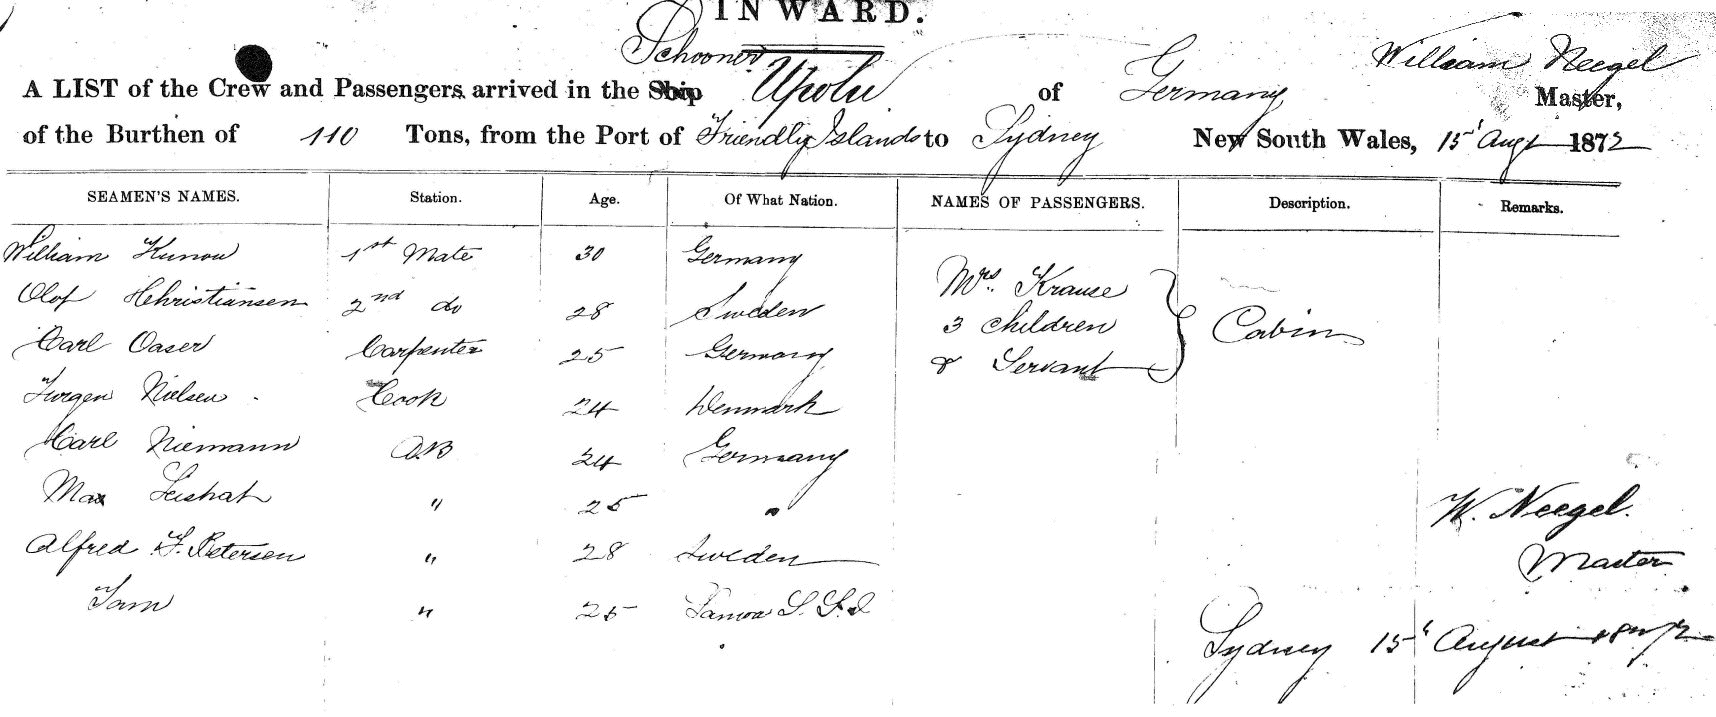 INWARD.
Schooner William Neegel
A LIST of the Crew and Passengers arrived in the Ship Upolu of Germany Master,
of the Burthen of 110 Tons, from the Port of Friendly Islands to Sydney New South Wales, 15' Augt 1872
SEAMEN'S NAMES. Station. Age. Of What Nation. NAMES OF PASSENGERS. Description. Remarks.
William Kunow 1st Mate 30 Germany
Mrs. Krause
Olof Christiansen 2nd do 28 Sweden
3 Children Cabin
Carl Oaser Carpenter 25 Germany
& Servant
Jurgen Nielsen Cook 24 Denmark
Carl Niemann AB 24 Germany
Max " 25 "
W. Neegel.
Alfred F. Petersen " 28 Sweden
Master
Tom " 25 Samoa S. S. I
Sydney 15' August 1872